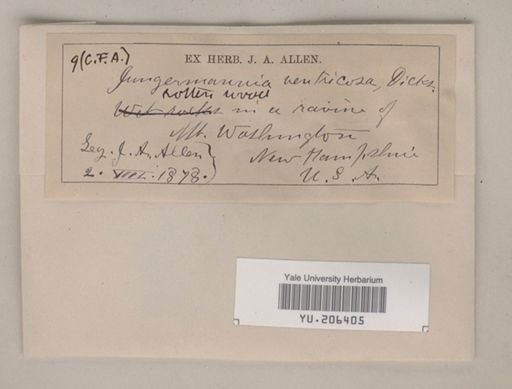 9(C.F.A.)
EX HERB. J. A. ALLEN.
Jungermannia ventricosa, Dicks.
rotten wood
Wet rocks in a ravine of
Mt. Washington
Leg. J. A. Allen
New Hampshire
2. VIII. 1878.
U. S. A.
Yale University Herbarium
YU.206405